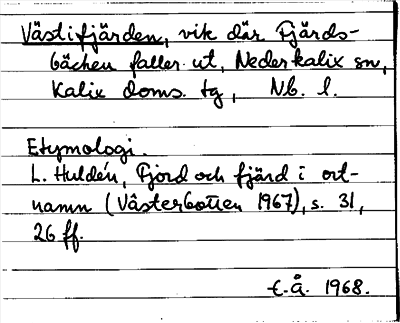 Västifjärden, vik där Fjärds-
bäcken faller ut, Nederkalix sn,
Kalix doms. tg, Nb. l.
Etymologi.
L. Huldén, Fjord och fjärd i ort-
namn (Västerbotten 1967), s. 31,
26 ff.
E.Å. 1968.